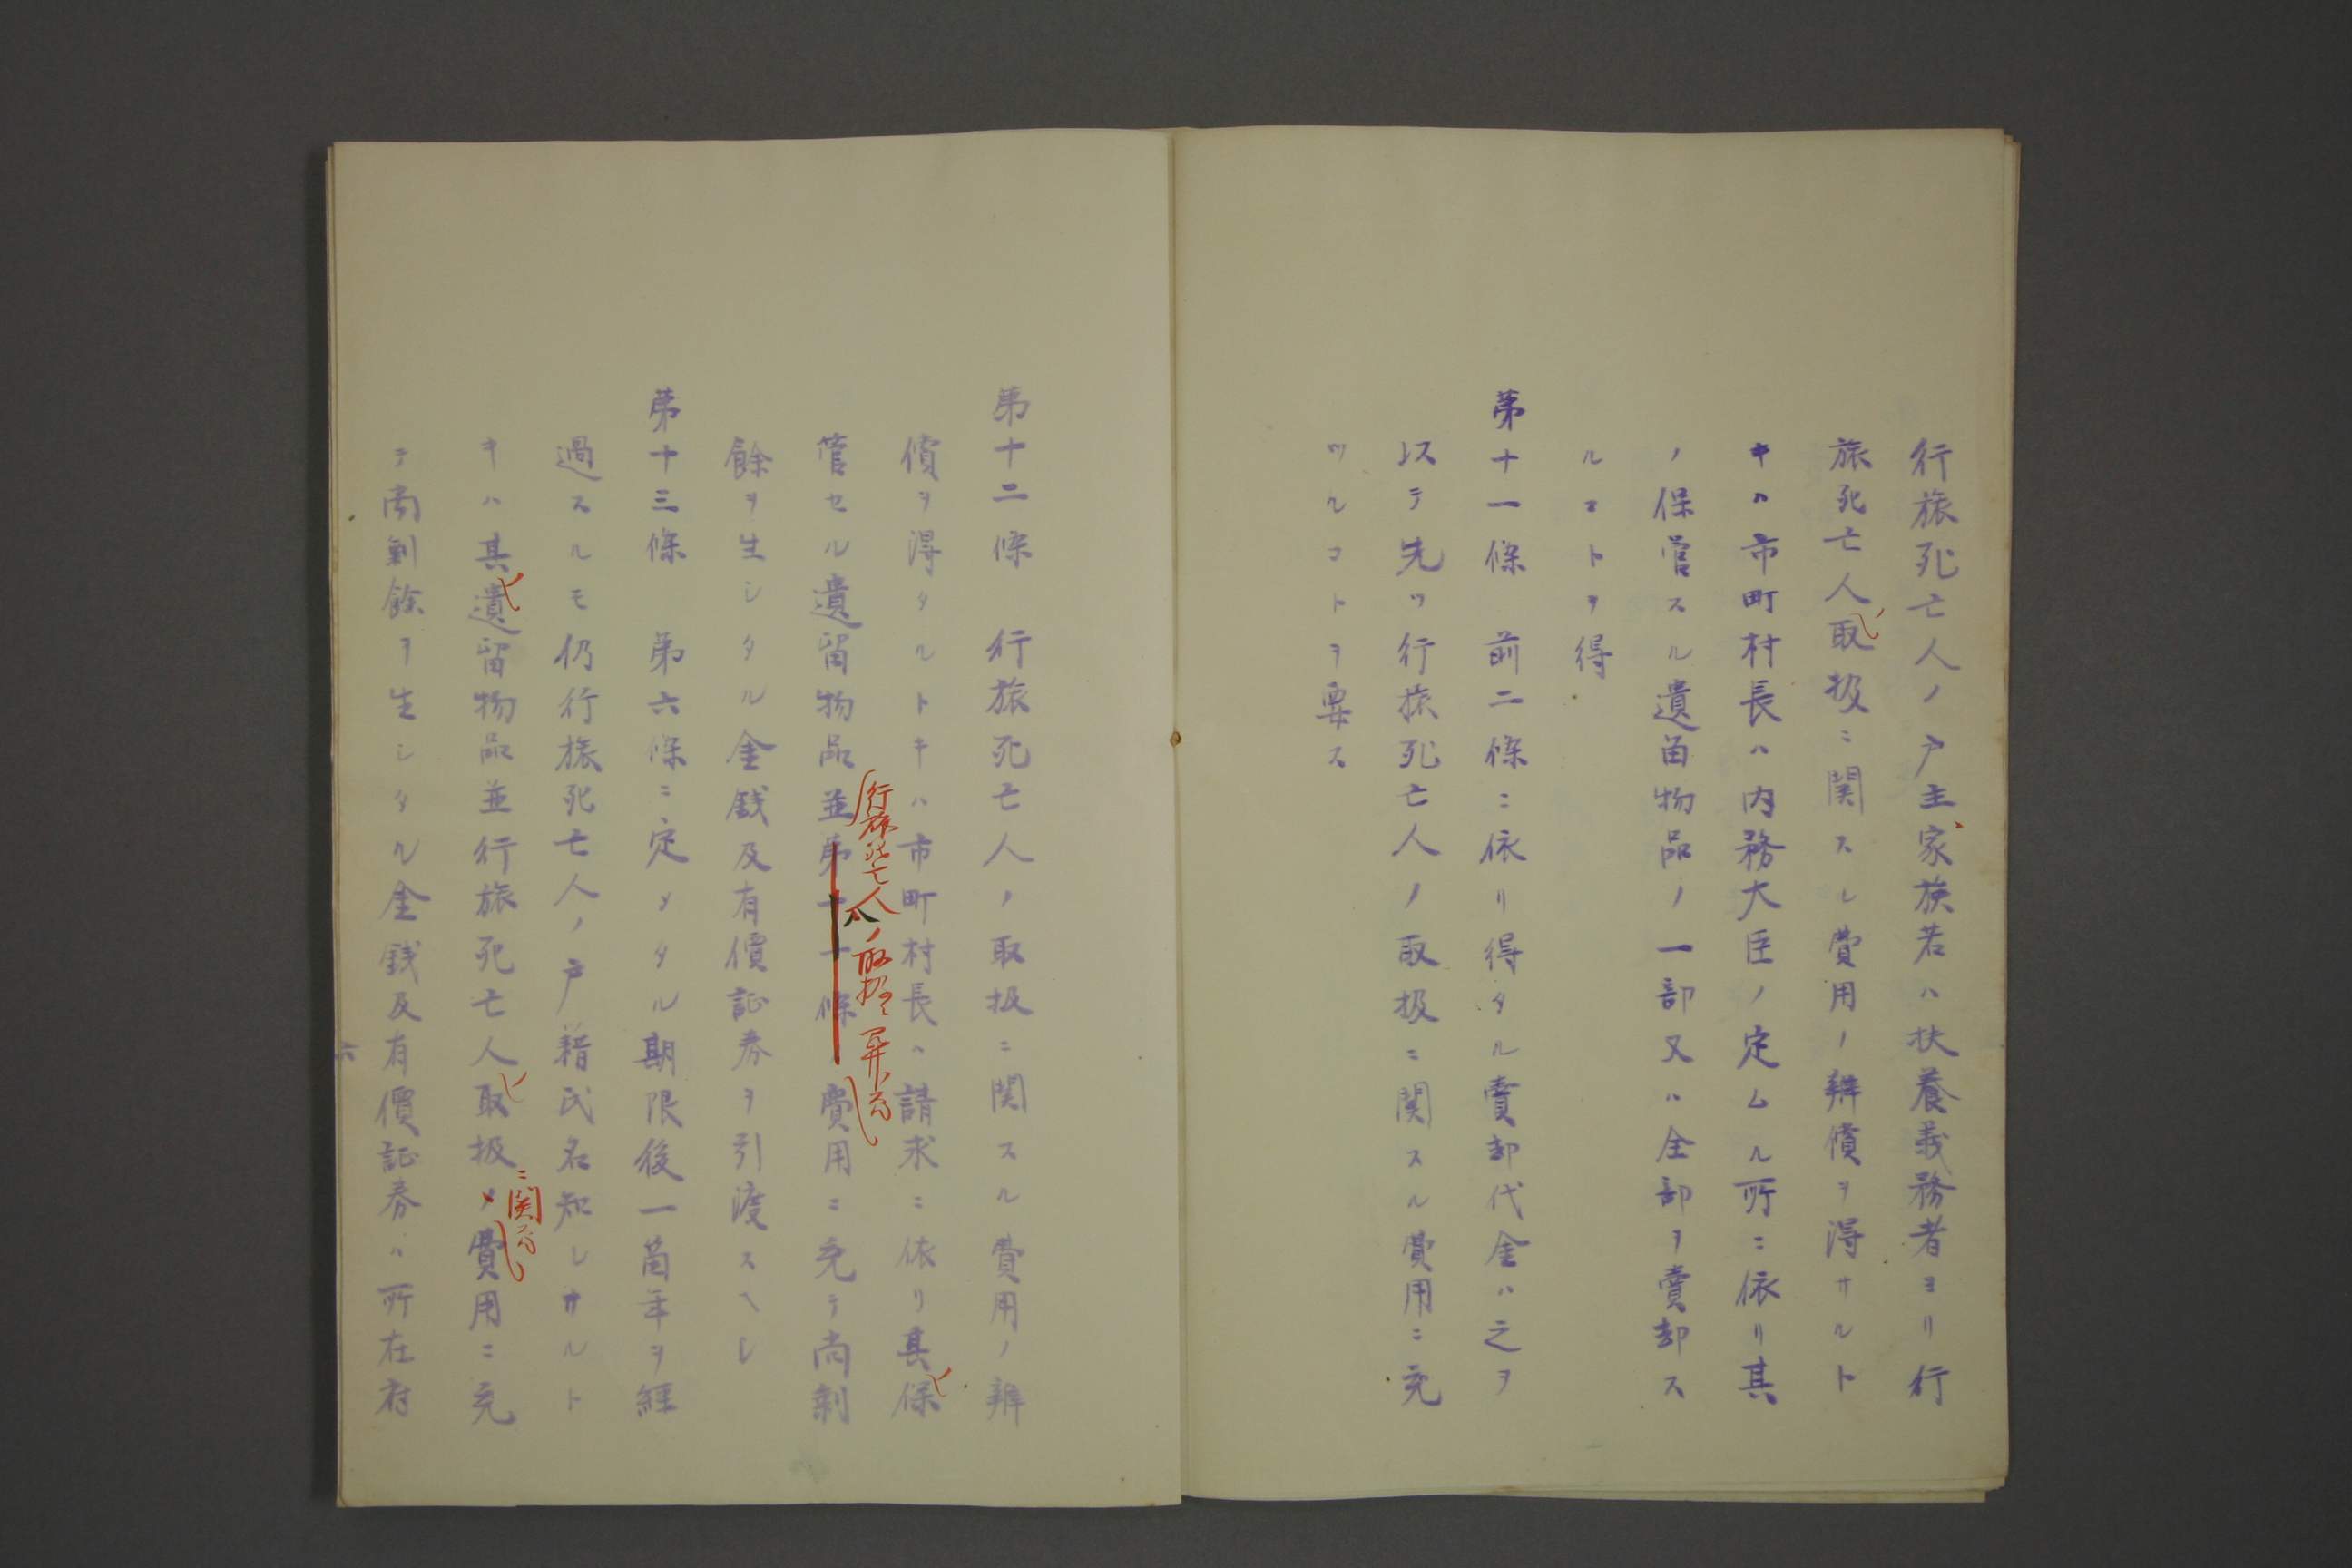 行旅死亡人ノ戸主、家族若ハ扶養義務者ヨリ行
旅死亡人取扱ニ関スル費用ノ辨償ヲ得サルト
キハ市町村長ハ内務大臣ノ定ムル所ニ依リ其
ノ保管スル遺留物品ノ一部又ハ全部ヲ賣却ス
ルコトヲ得
第十一條 前二條ニ依リ得タル賣却代金ハ之ヲ
以テ先ツ行旅死亡人ノ取扱ニ関スル費用ニ充
ツルコトヲ要ス
第十二條 行旅死亡人ノ取扱ニ関スル費用ノ辨
償ヲ得タルトキハ市町村長ハ請求ニ依リ其保
管セル遺留物品並第十一條費用ニ充テ尚剰
行旅死亡人ノ取扱ニ
餘ヲ生シタル金銭及有價証券ヲ引渡スヘシ
第十三條 第六條ニ定メタル期限後一箇年ヲ経
過スルモ仍行旅死亡人ノ戸籍氏名知レサルト
キハ其遺留物品並行旅死亡人取扱費用ニ充
ニ関スル
テ尚剰餘ヲ生シタル金銭及有價証券ハ所在府
六